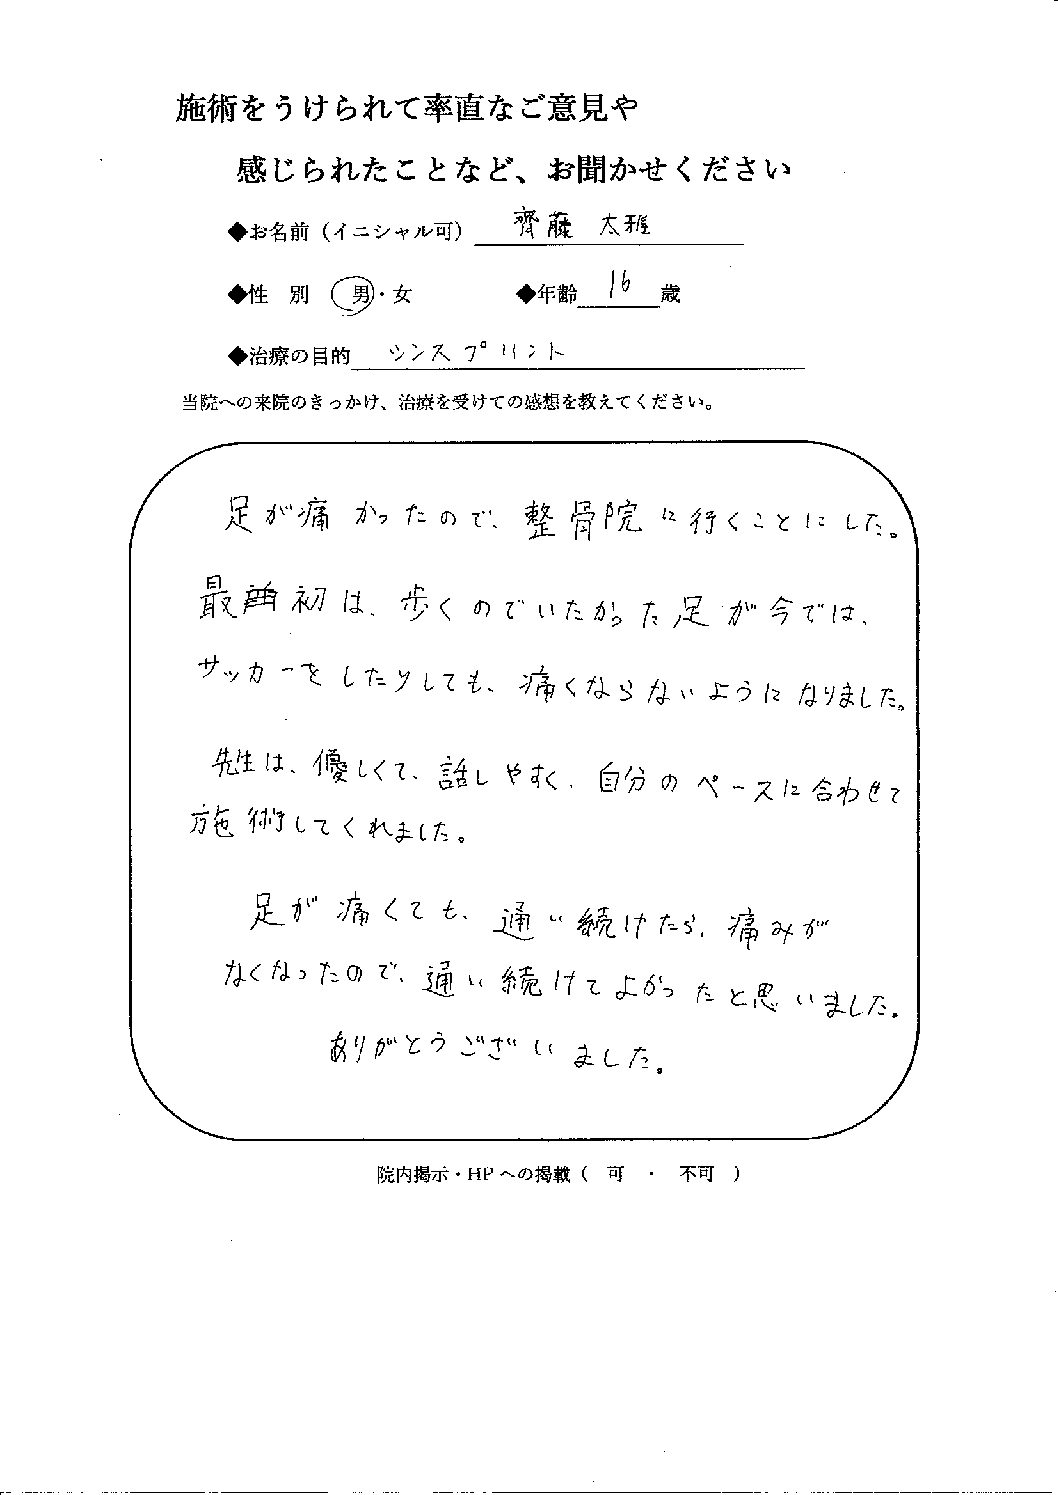 施術をうけられて率直なご意見や
感じられたことなど、お聞かせください
◆お名前（イニシャル可） 齊藤 太雅
◆性 別 男・女 ◆年齢 16 歳
◆治療の目的 シンスプリント
当院への来院のきっかけ、治療を受けての感想を教えてください。
足が痛かったので、整骨院に行くことにした。
最初は、歩くのでいたかった足が今では、
サッカーをしたりしても、痛くならないようになりました。
先生は、優しくて、話しやすく、自分のペースに合わせて
施術してくれました。
足が痛くても、通い続けたら、痛みが
なくなったので、通い続けてよかったと思いました。
ありがとうございました。
院内掲示・HPへの掲載（ 可 ・ 不可 ）